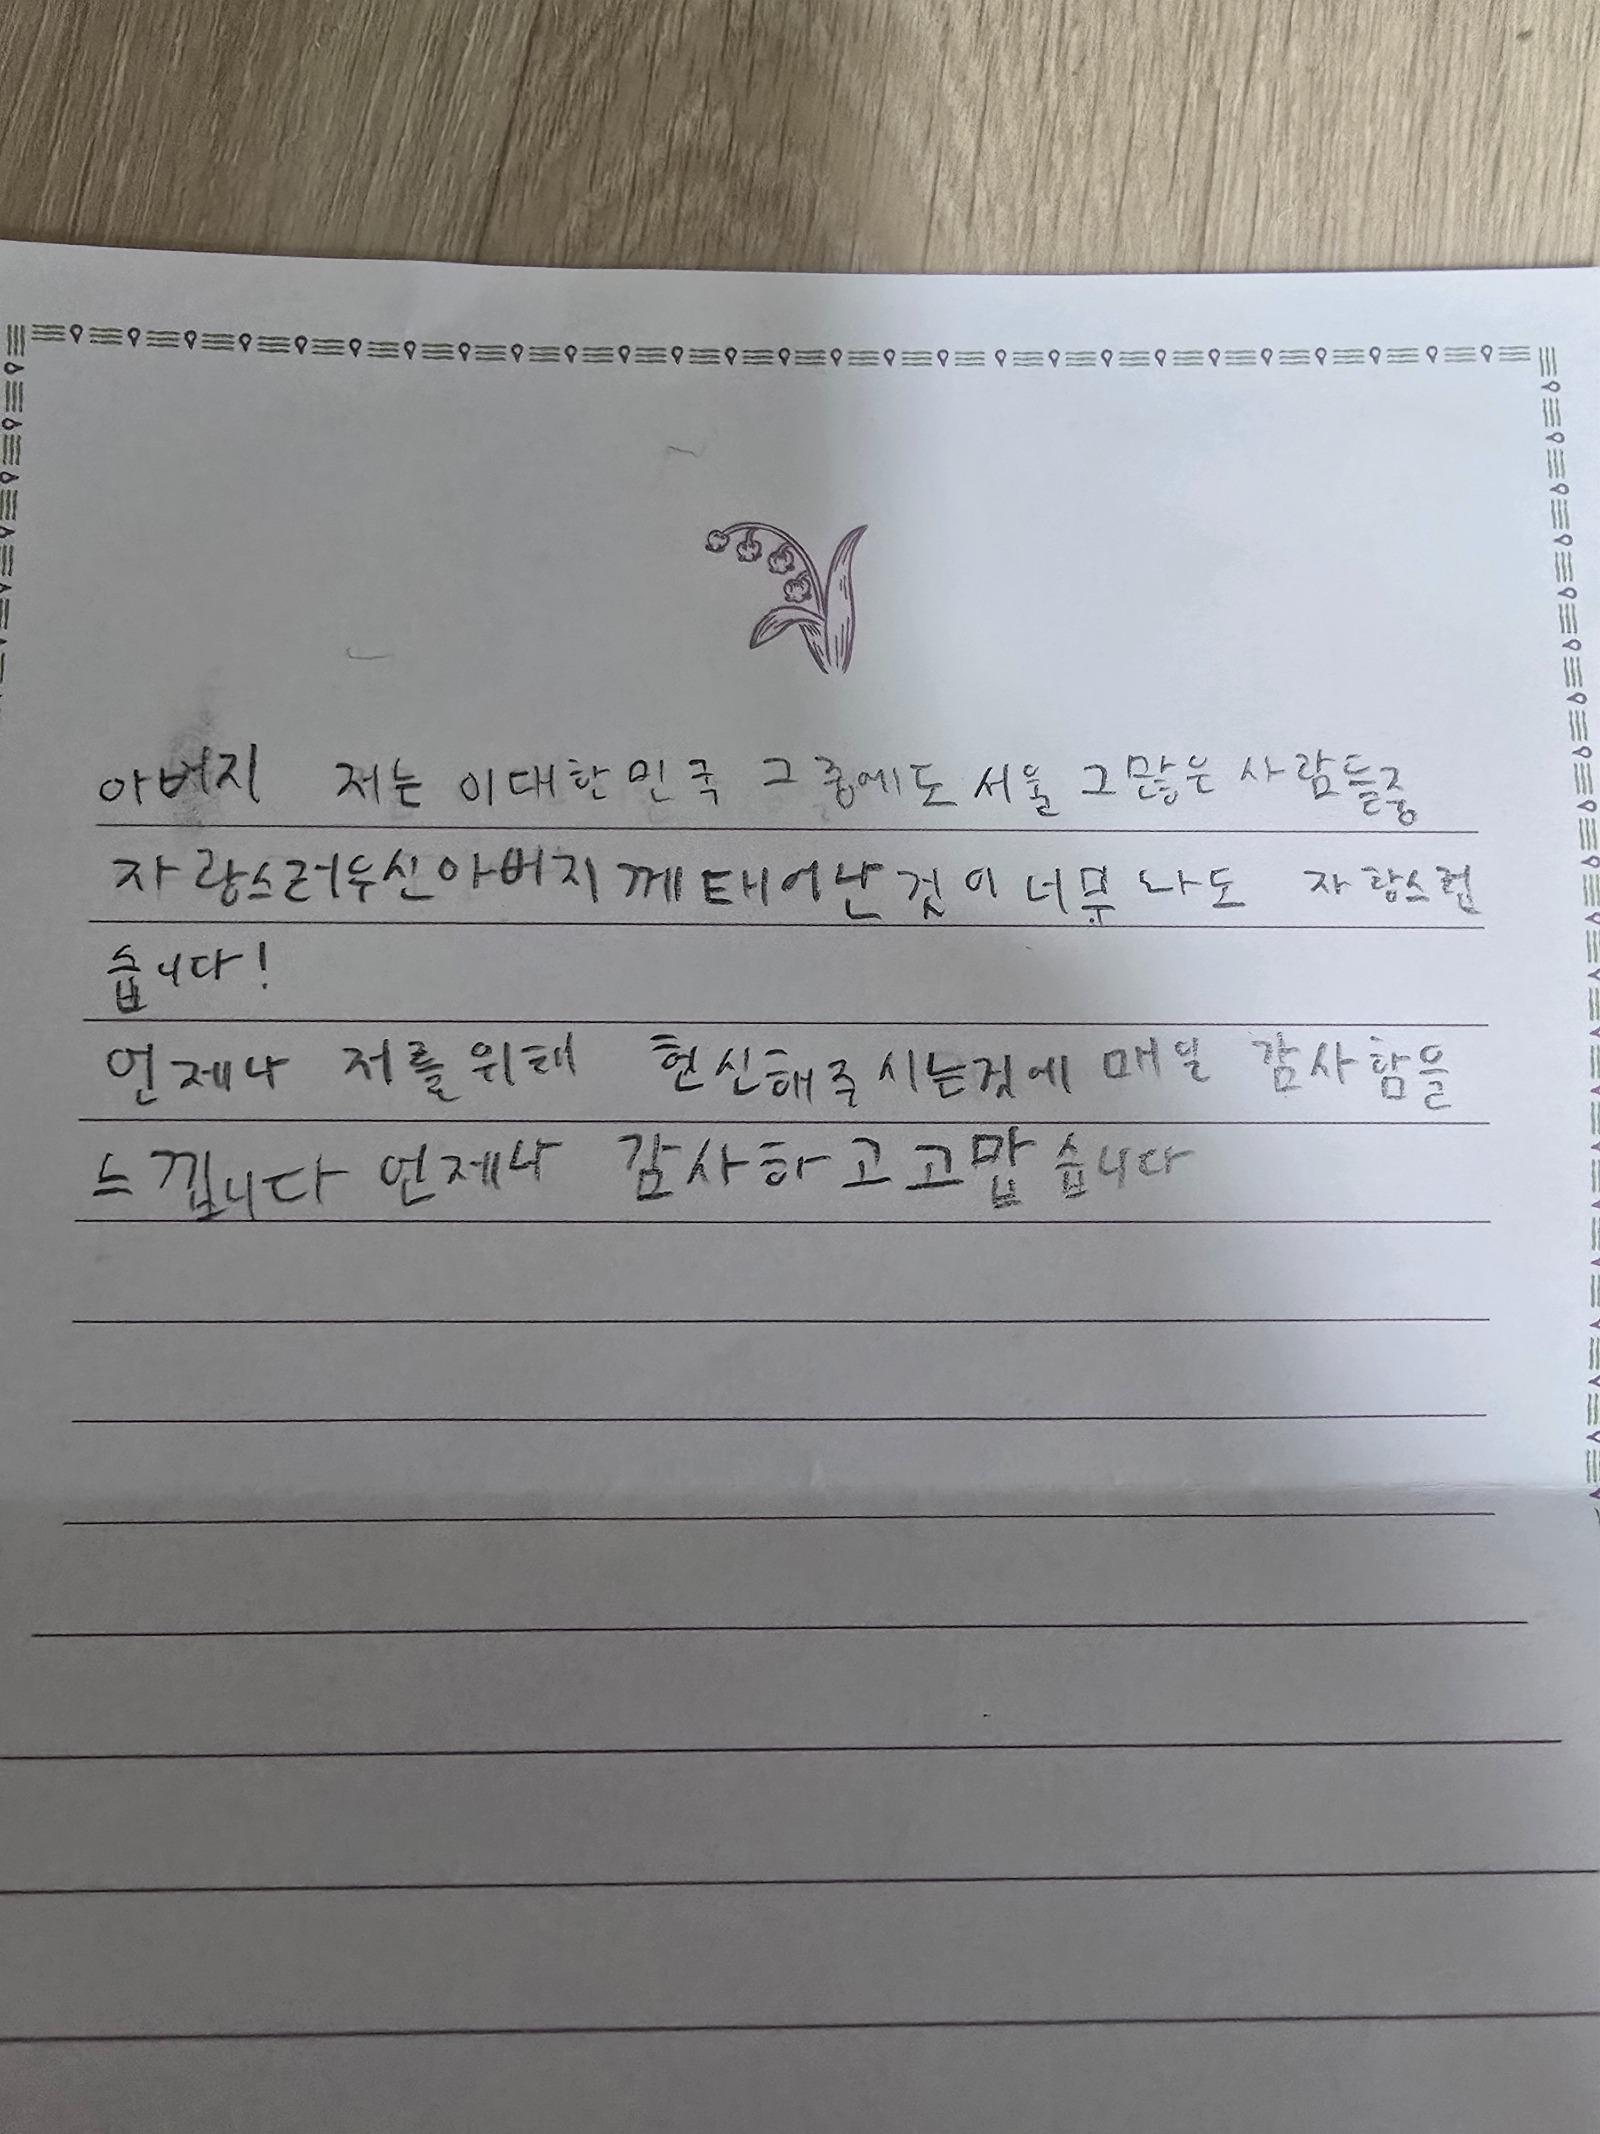 아버지 저는 이대한민국 그중에도 서울 그많은 사람들중
자랑스러우신아버지께태어난것이너무 나도 자랑스럽
습니다!
언제나 저를위해 헌신해주시는것에 매일 감사함을
느낍니다 언제나 감사하고고맙습니다